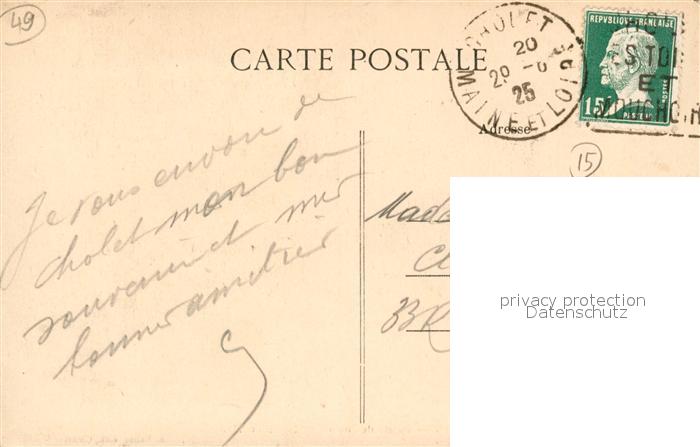 49
CARTE POSTALE
CHOLET
20
29 - 6
25
MAINE ET LOIRE
REPVBLIQVE FRANÇAISE
POSTES
15c
PASTEUR
ET
MOUCHOIR
Adresse
15
Je vous envoie de
cholet mon bon
souvenir et mes
bonnes amitiés
Mada
Cl
BR
privacy protection
Datenschutz